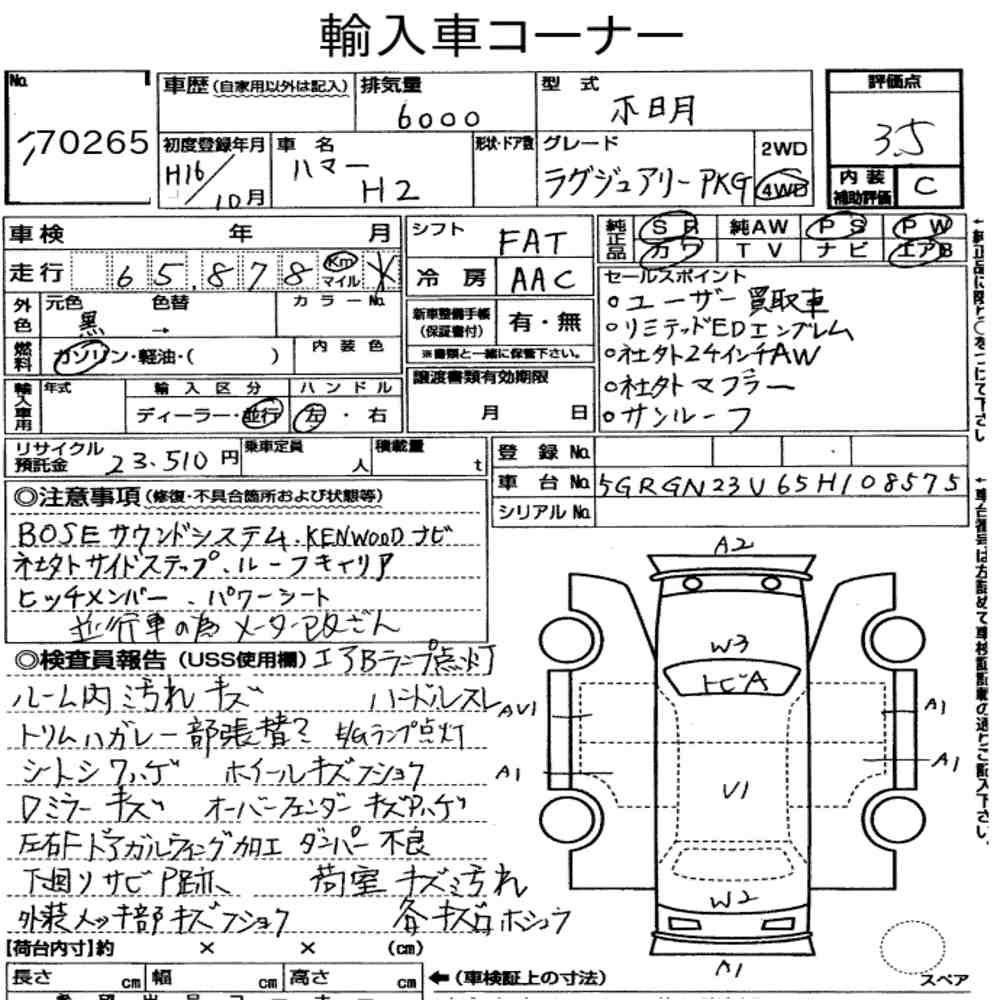 輸入車コーナー
No. 70265
車歴(自家用以外は記入) 排気量 6000 型式 不明 評価点 3.5
初度登録年月 H16/10月 車名 ハマー H2 形状・ドア数 グレード ラグジュアリーPKG 2WD 4WD 内装補助評価 C
車検 年 月 シフト FAT 純正品 SR 純AW PS PW
走行 65,878 Km マイル 冷房 AAC カワ TV ナビ エアB
外色 元色 黒 色替 → カラーNo.
新車整備手帳(保証書付) 有・無
※書類と一緒に保管下さい。
燃料 ガソリン・軽油・( ) 内装色
輸入車用 年式 輸入区分 ディーラー・並行 ハンドル 左・右
譲渡書類有効期限 月 日
セールスポイント
○ユーザー買取車
○リミテッドEDエンブレム
○社外24インチAW
○社外マフラー
○サンルーフ
リサイクル預託金 23,510円 乗車定員 人 積載量 t
登録No.
車台No. 5GRGN23U65H108575
シリアルNo.
◎注意事項(修復・不具合箇所および状態等)
BOSEサウンドシステム.KENWOODナビ
社外サイドステップ.ルーフキャリア
ヒッチメンバー.パワーシート
並行車の為メーター改ざん
◎検査員報告(USS使用欄)エアBランプ点灯
ルーム内汚れキズ ハンドルスレ
トリムハガレ一部張替え E/Gランプ点灯
シートシワハゲ ホイールキズフショク
Dミラーキズ オーバーフェンダーキズハゲ
左右Fドアガルウィング加工 ダンパー不良
下廻りサビP跡 荷室キズ汚れ
外装メッキ部キズフショク 各キズ凹ホシュウ
A2
W3
トビA
AU1
A1
A1
A1
U1
W2
A1
スペア
【荷台内寸】約 × × (cm)
長さ cm 幅 cm 高さ cm ←(車検証上の寸法)
←純正品に限り○をつけて下さい
←車台番号は左詰めで車検証記載の通りご記入下さい。